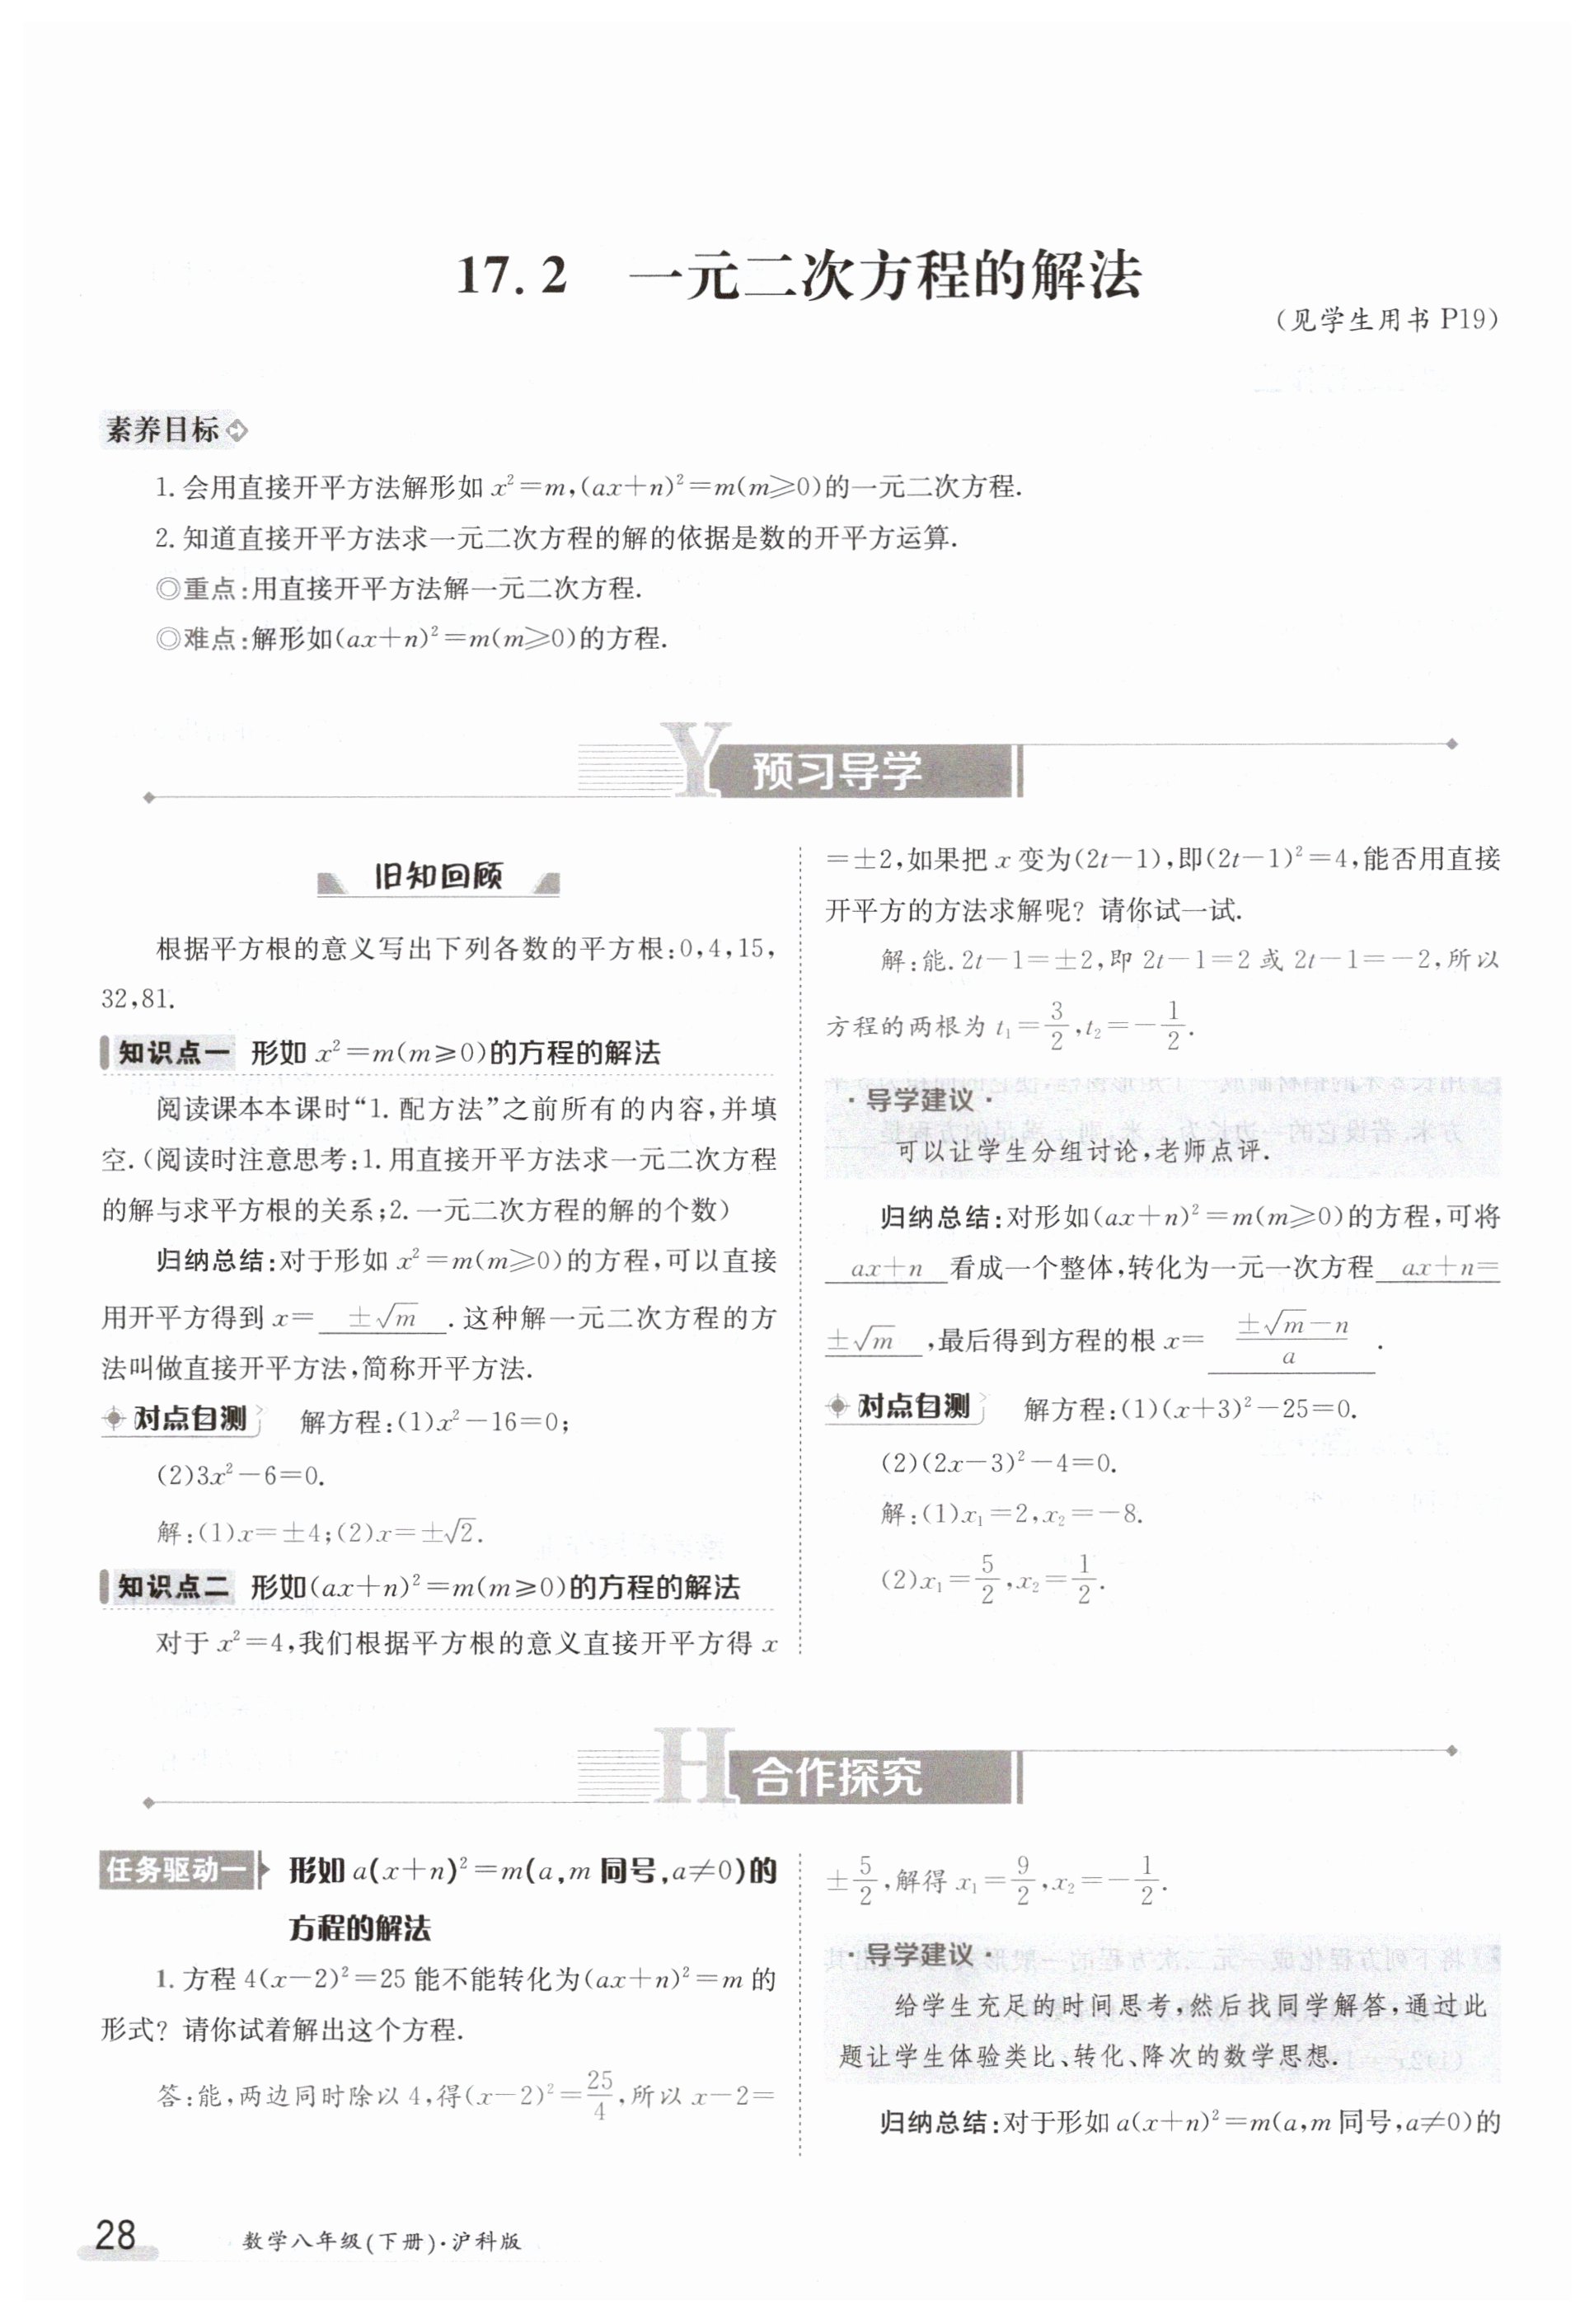 17.2 一元二次方程的解法
(见学生用书 P19)
素养目标
1. 会用直接开平方法解形如 x²=m,(ax+n)²=m(m≥0)的一元二次方程.
2. 知道直接开平方法求一元二次方程的解的依据是数的开平方运算.
◎重点:用直接开平方法解一元二次方程.
◎难点:解形如(ax+n)²=m(m≥0)的方程.
Y 预习导学
旧知回顾
根据平方根的意义写出下列各数的平方根:0,4,15,
32,81.
知识点一 形如 x²=m(m≥0)的方程的解法
阅读课本本课时“1. 配方法”之前所有的内容,并填
空.(阅读时注意思考:1. 用直接开平方法求一元二次方程
的解与求平方根的关系;2. 一元二次方程的解的个数)
归纳总结:对于形如 x²=m(m≥0)的方程,可以直接
用开平方得到 x= ±√m .这种解一元二次方程的方
法叫做直接开平方法,简称开平方法.
对点自测 解方程:(1)x²-16=0;
(2)3x²-6=0.
解:(1)x=±4;(2)x=±√2.
知识点二 形如(ax+n)²=m(m≥0)的方程的解法
对于 x²=4,我们根据平方根的意义直接开平方得 x
=±2,如果把 x 变为(2t-1),即(2t-1)²=4,能否用直接
开平方的方法求解呢? 请你试一试.
解:能. 2t-1=±2,即 2t-1=2 或 2t-1=-2,所以
方程的两根为 t₁=3/2,t₂=-1/2.
·导学建议·
可以让学生分组讨论,老师点评.
归纳总结:对形如(ax+n)²=m(m≥0)的方程,可将
ax+n 看成一个整体,转化为一元一次方程 ax+n=
±√m ,最后得到方程的根 x= (±√m-n)/a .
对点自测 解方程:(1)(x+3)²-25=0.
(2)(2x-3)²-4=0.
解:(1)x₁=2,x₂=-8.
(2)x₁=5/2,x₂=1/2.
H 合作探究
任务驱动一 形如 a(x+n)²=m(a,m 同号,a≠0)的
方程的解法
1. 方程 4(x-2)²=25 能不能转化为(ax+n)²=m 的
形式? 请你试着解出这个方程.
答:能,两边同时除以 4,得(x-2)²=25/4,所以 x-2=
±5/2,解得 x₁=9/2,x₂=-1/2.
·导学建议·
给学生充足的时间思考,然后找同学解答,通过此
题让学生体验类比、转化、降次的数学思想.
归纳总结:对于形如 a(x+n)²=m(a,m 同号,a≠0)的
28 数学八年级(下册)·沪科版